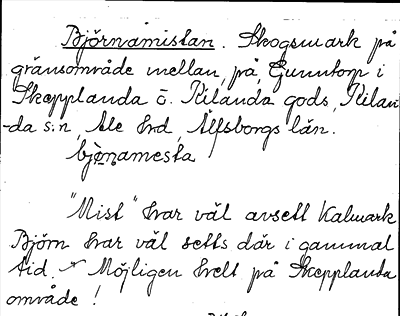 Björnamistan. Skogsmark på
gränsområde mellan, på, Gunntorp i
Skepplanda o. Kilanda gods, Kilan
-da s:n, Ale hrd, Älfsborgs län.
bjö̱namesta
"Mist" har väl avsett kalmark
Björn har väl setts där i gammal
tid. Möjligen helt på Skepplanda
område!